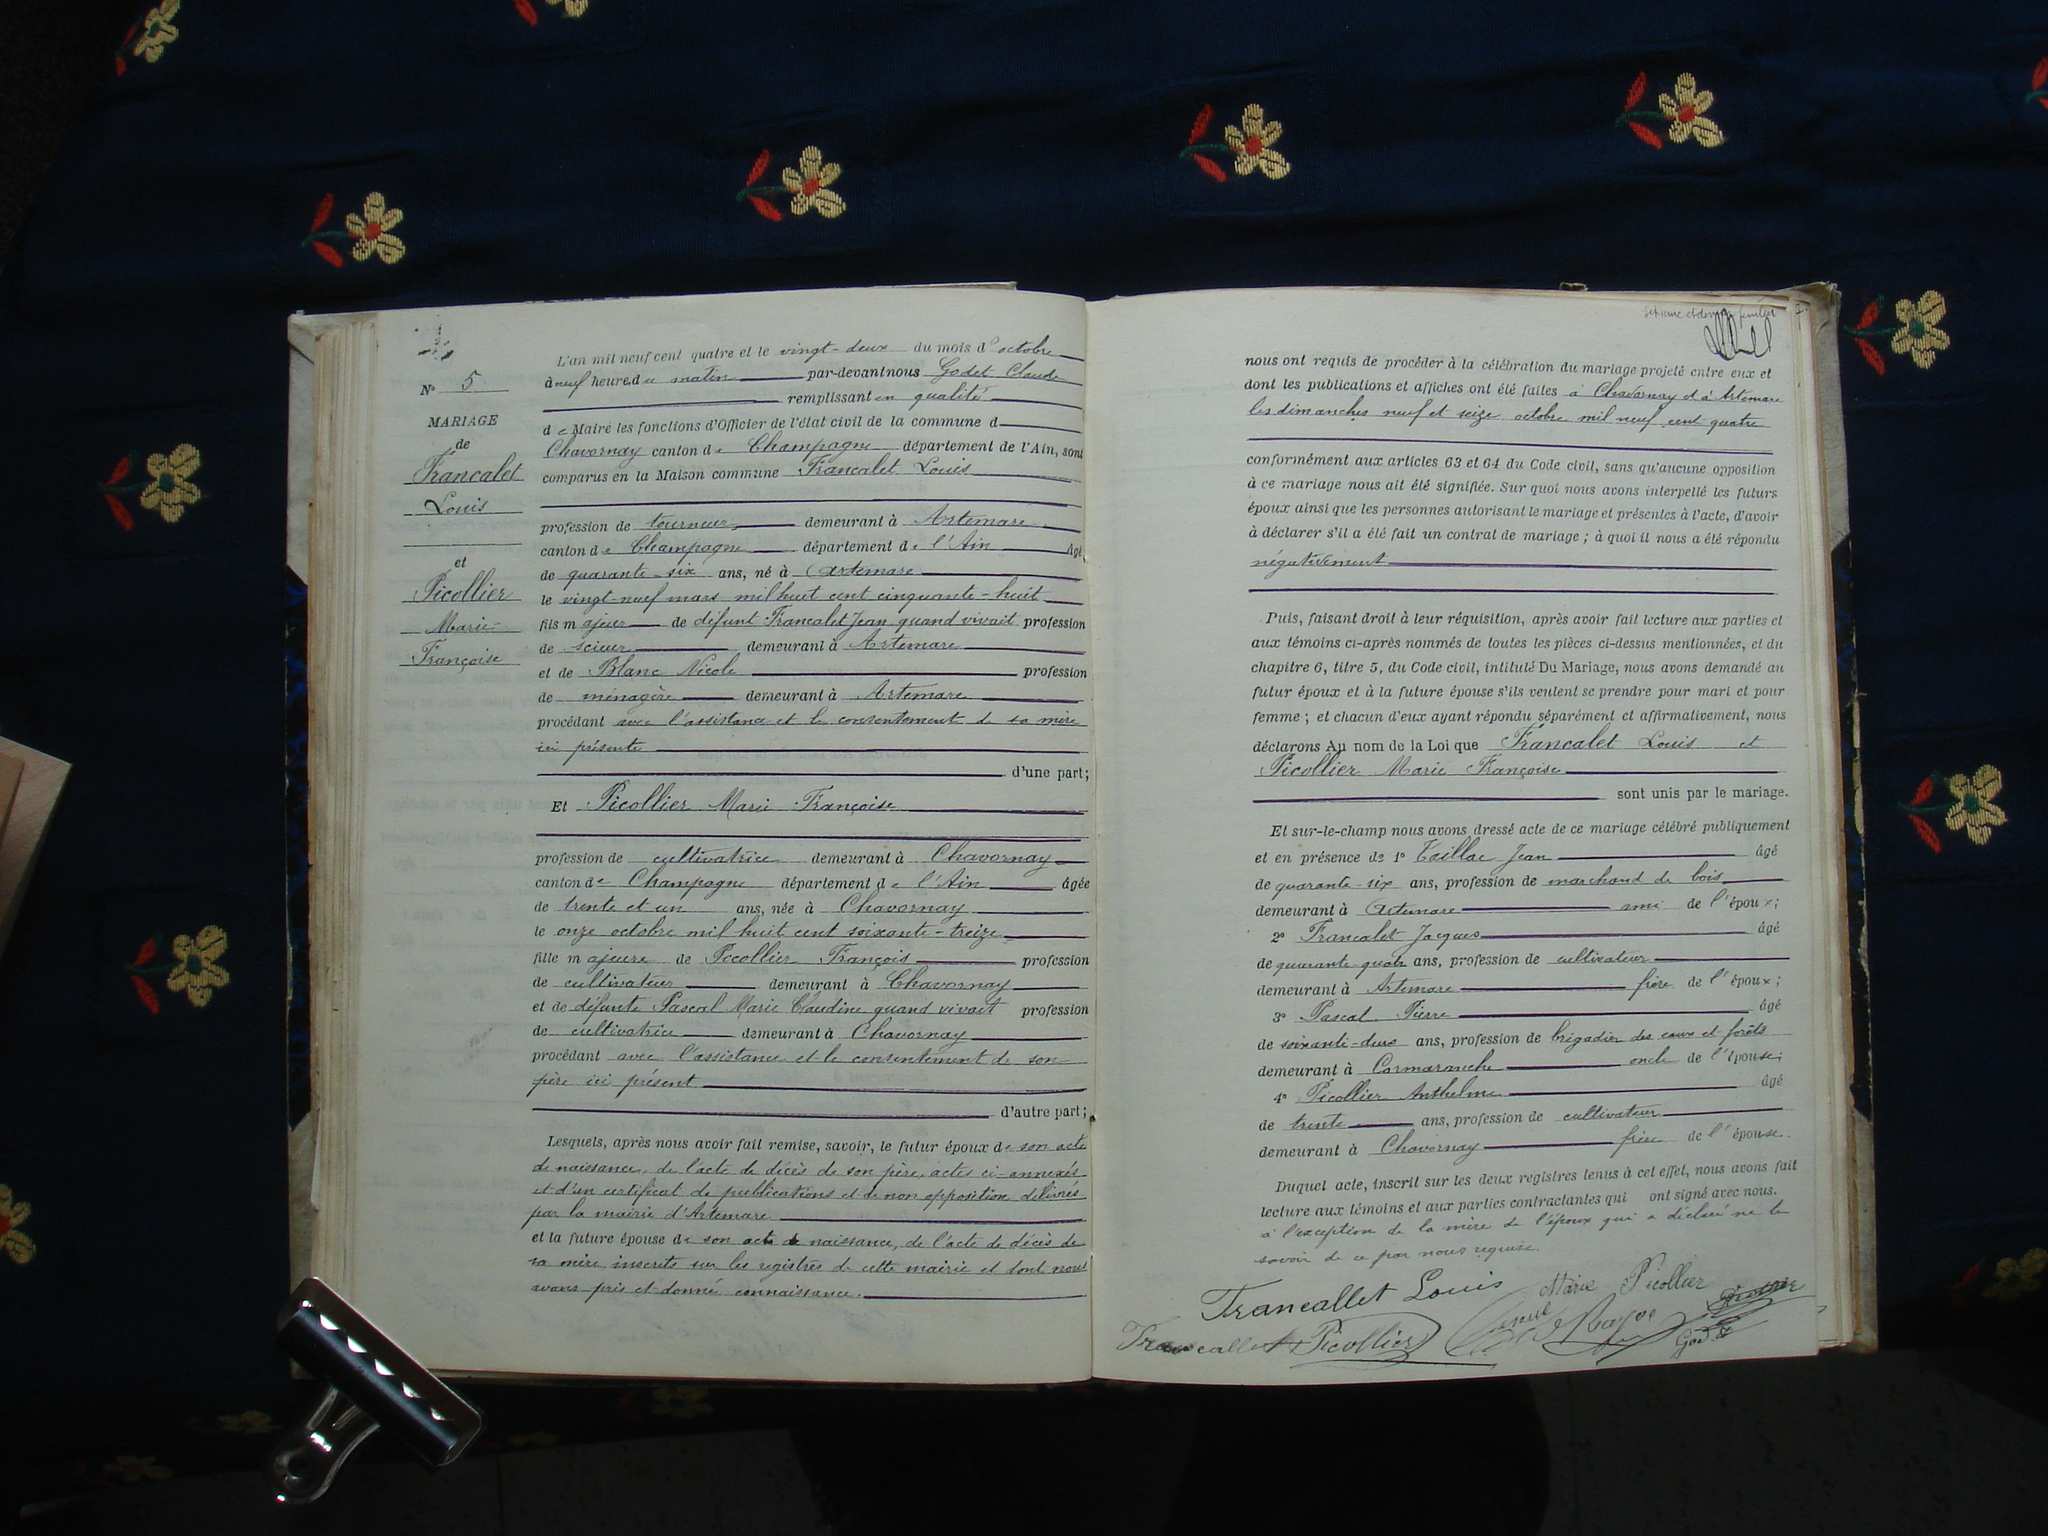 N° 5
MARIAGE
de
Francalet
Louis
et
Picollier
Marie
Françoise
L'an mil neuf cent quatre et le vingt-deux du mois d'octobre
à neuf heures du matin par-devant nous Godet Claude
remplissant en qualité
de Maire les fonctions d'Officier de l'état civil de la commune d
Chavornay canton de Champagne département de l'Ain, sont
comparus en la Maison commune Francalet Louis
profession de tourneur demeurant à Artemare
canton de Champagne département de l'Ain âgé
de quarante-six ans, né à Artemare
le vingt-neuf mars mil huit cent cinquante-huit
fils majeur de défunt Francalet Jean quand vivait profession
de scieur demeurant à Artemare
et de Blanc Nicole profession
de ménagère demeurant à Artemare
procédant avec l'assistance et le consentement de sa mère
ici présente
d'une part;
Et Picollier Marie Françoise
profession de cultivatrice demeurant à Chavornay
canton de Champagne département de l'Ain âgée
de trente et un ans, née à Chavornay
le onze octobre mil huit cent soixante-treize
fille majeure de Picollier François profession
de cultivateur demeurant à Chavornay
et de défunte Pascal Marie Claudine quand vivait profession
de cultivatrice demeurant à Chavornay
procédant avec l'assistance et le consentement de son
père ici présent
d'autre part;
Lesquels, après nous avoir fait remise, savoir, le futur époux de son acte
de naissance, de l'acte de décès de son père, actes ci-annexés
et d'un certificat de publications et de non opposition délivrés
par la mairie d'Artemare
et la future épouse de son acte de naissance, de l'acte de décès de
sa mère inscrits sur les registres de cette mairie et dont nous
avons pris et donné connaissance.
nous ont requis de procéder à la célébration du mariage projeté entre eux et
dont les publications et affiches ont été faites à Chavornay et à Artemare
les dimanches neuf et seize octobre mil neuf cent quatre
conformément aux articles 63 et 64 du Code civil, sans qu'aucune opposition
à ce mariage nous ait été signifiée. Sur quoi nous avons interpellé les futurs
époux ainsi que les personnes autorisant le mariage et présentes à l'acte, d'avoir
à déclarer s'il a été fait un contrat de mariage; à quoi il nous a été répondu
négativement
Puis, faisant droit à leur réquisition, après avoir fait lecture aux parties et
aux témoins ci-après nommés de toutes les pièces ci-dessus mentionnées, et du
chapitre 6, titre 5, du Code civil, intitulé Du Mariage, nous avons demandé au
futur époux et à la future épouse s'ils veulent se prendre pour mari et pour
femme; et chacun d'eux ayant répondu séparément et affirmativement, nous
déclarons Au nom de la Loi que Francalet Louis et
Picollier Marie Françoise
sont unis par le mariage.
Et sur-le-champ nous avons dressé acte de ce mariage célébré publiquement
et en présence de 1° Jean âgé
de quarante-six ans, profession de marchand de bois
demeurant à Artemare ami de l'époux;
2° Francalet Jacques âgé
de quarante-quatre ans, profession de cultivateur
demeurant à Artemare frère de l'époux;
3° Pascal Pierre âgé
de soixante-deux ans, profession de brigadier des eaux et forêts
demeurant à Cormaranche oncle de l'épouse;
4° Picollier Anthelme âgé
de trente ans, profession de cultivateur
demeurant à Chavornay frère de l'épouse.
Duquel acte, inscrit sur les deux registres tenus à cet effet, nous avons fait
lecture aux témoins et aux parties contractantes qui ont signé avec nous.
à l'exception de la mère de l'époux qui a déclaré ne le
savoir de ce par nous requise.
Francallet Louis Marie Picollier
Francallet Picollier Godet